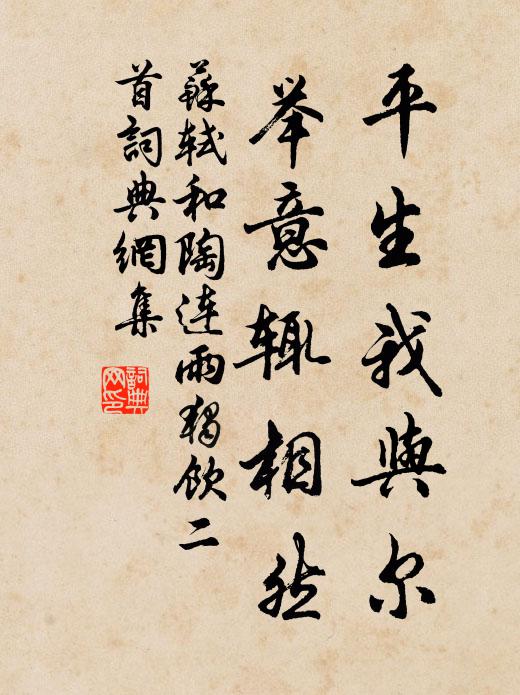 平生我與尔
举意辄相然
蘇軾和陶连雨獨飲二
首詞典網集
詞典
网印